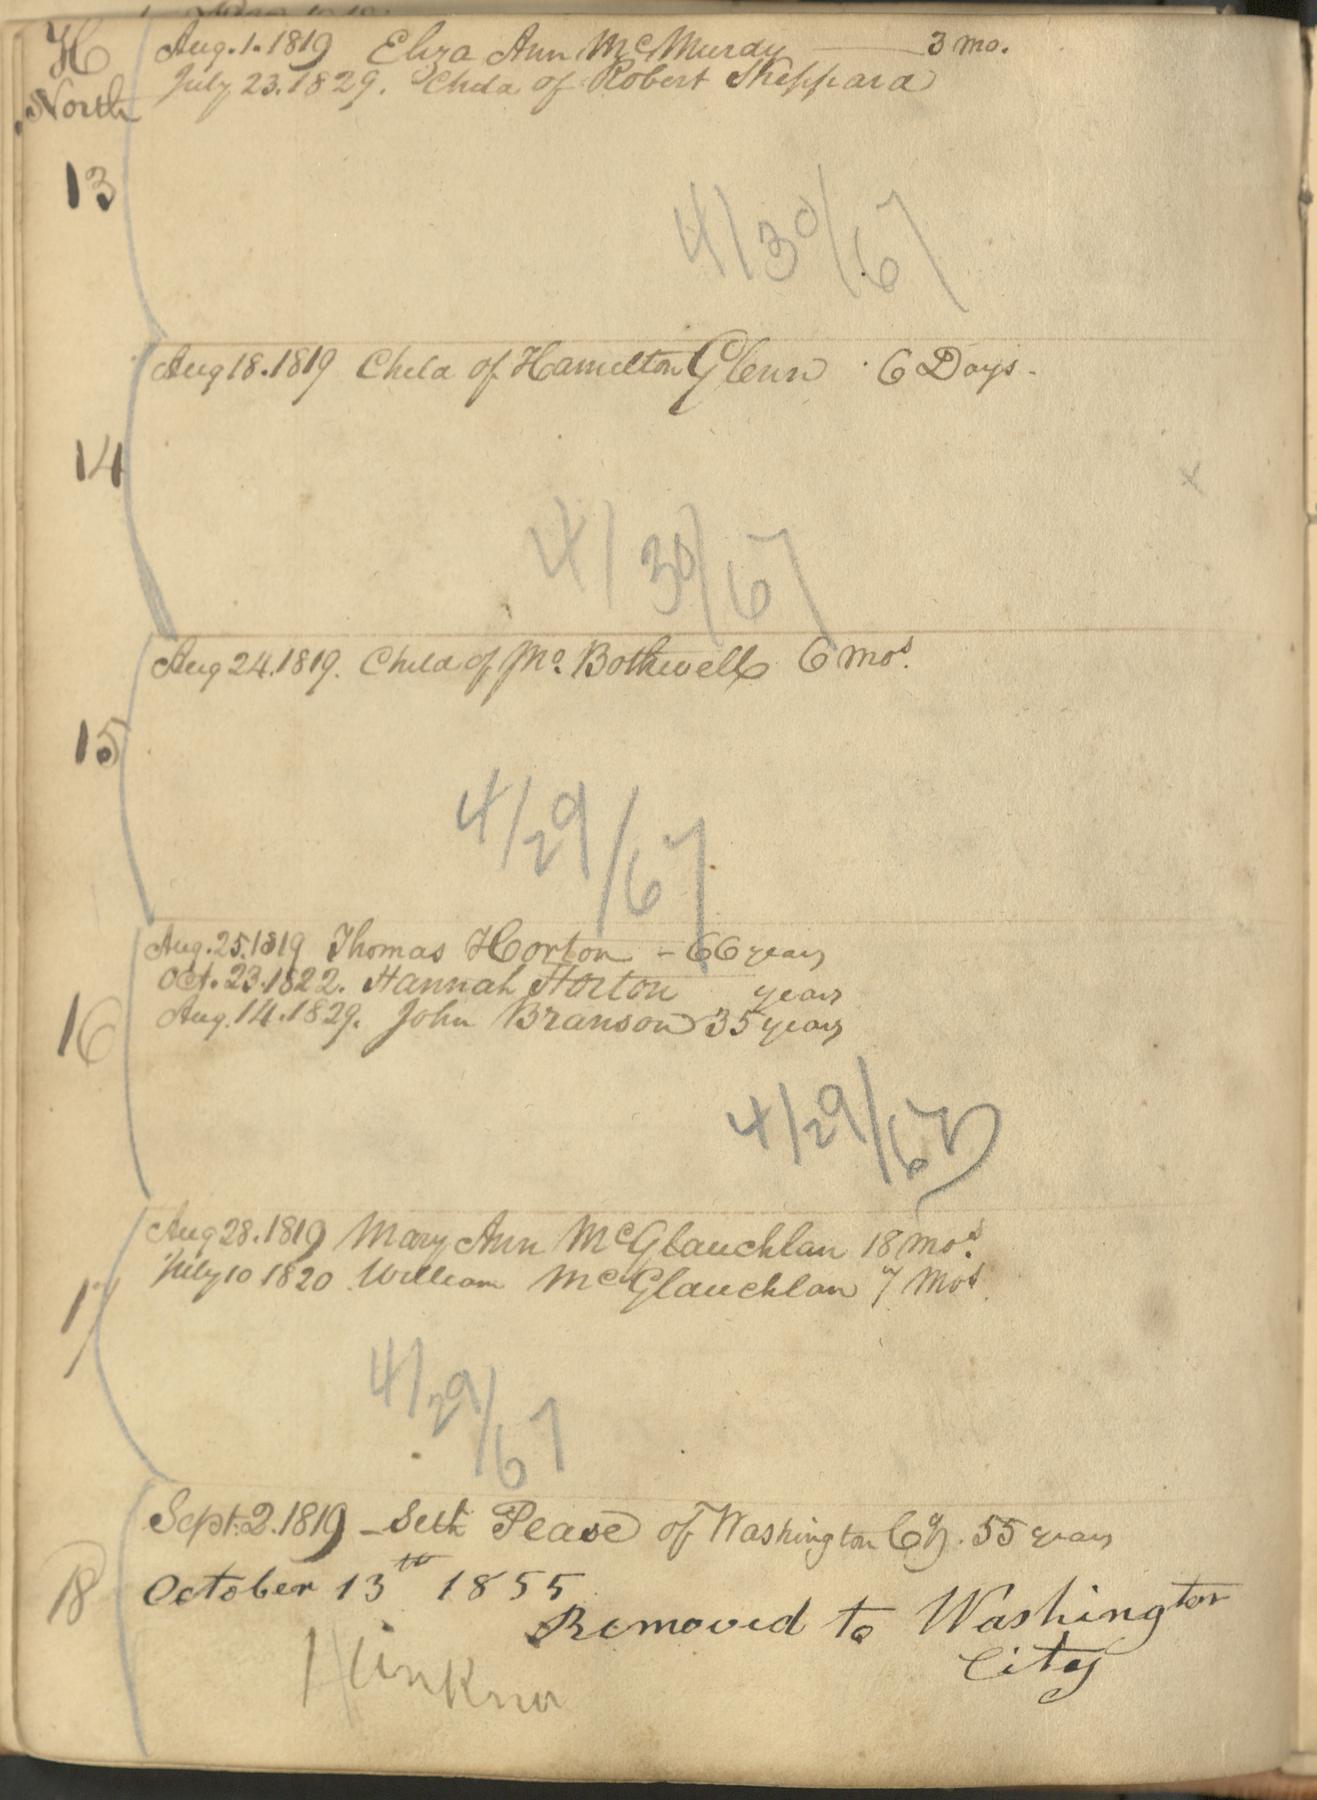 H
North
Aug. 1. 1819 Eliza Ann McMurdy 3 mo.
July 23. 1829. Child of Robert Sheppard
13
4/30/67
Aug 18. 1819 Child of Hamilton Glenn 6 Days.
14
x
4/30/67
Aug 24. 1819. Child of Jno. Bothwell 6 mos.
15
4/29/67
Aug. 25. 1819 Thomas Horton - 66 years
Oct. 23. 1822. Hannah Horton years
Aug. 14. 1829. John Branson 35 years
16
4/29/67
Aug 28. 1819 Mary Ann McGlauchlan 18 mos.
July 10 1820 William McGlauchlan 7 Mos.
17
4/29/67
Sept. 2. 1819 - Seth Pease of Washington Cy. 55 years
18
October 13th 1855
Removed to Washington
City